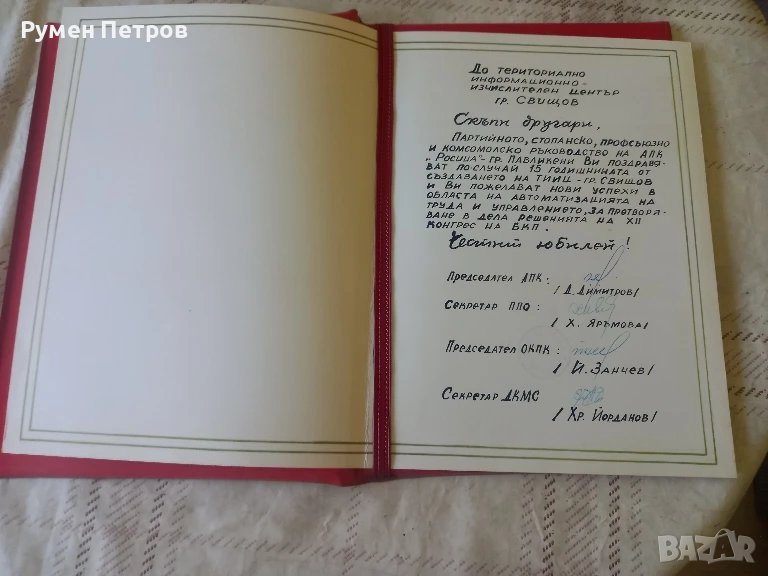 Румен Петров
До териториално
информационно-
изчислителен център
гр. Свищов
Скъпи другари,
Партийното, стопанско, профсъюзно
и комсомолско ръководство на АПК
„Росица"- гр. Павликени Ви поздравя-
ват по случай 15 годишнината от
създаването на ТИИЦ - гр. Свищов
и Ви пожелават нови успехи в
областа на автоматизацията на
труда и управлението, за претворя-
ване в дела решенията на XII
конгрес на БКП.
Честит юбилей!
Председател АПК:
/ Д. Димитров/
Секретар ППО:
/ Х. Яръмова/
Председател ОКПК:
/ Й. Занчев/
Секретар ДКМС
/ Хр. Йорданов/
BAZAR